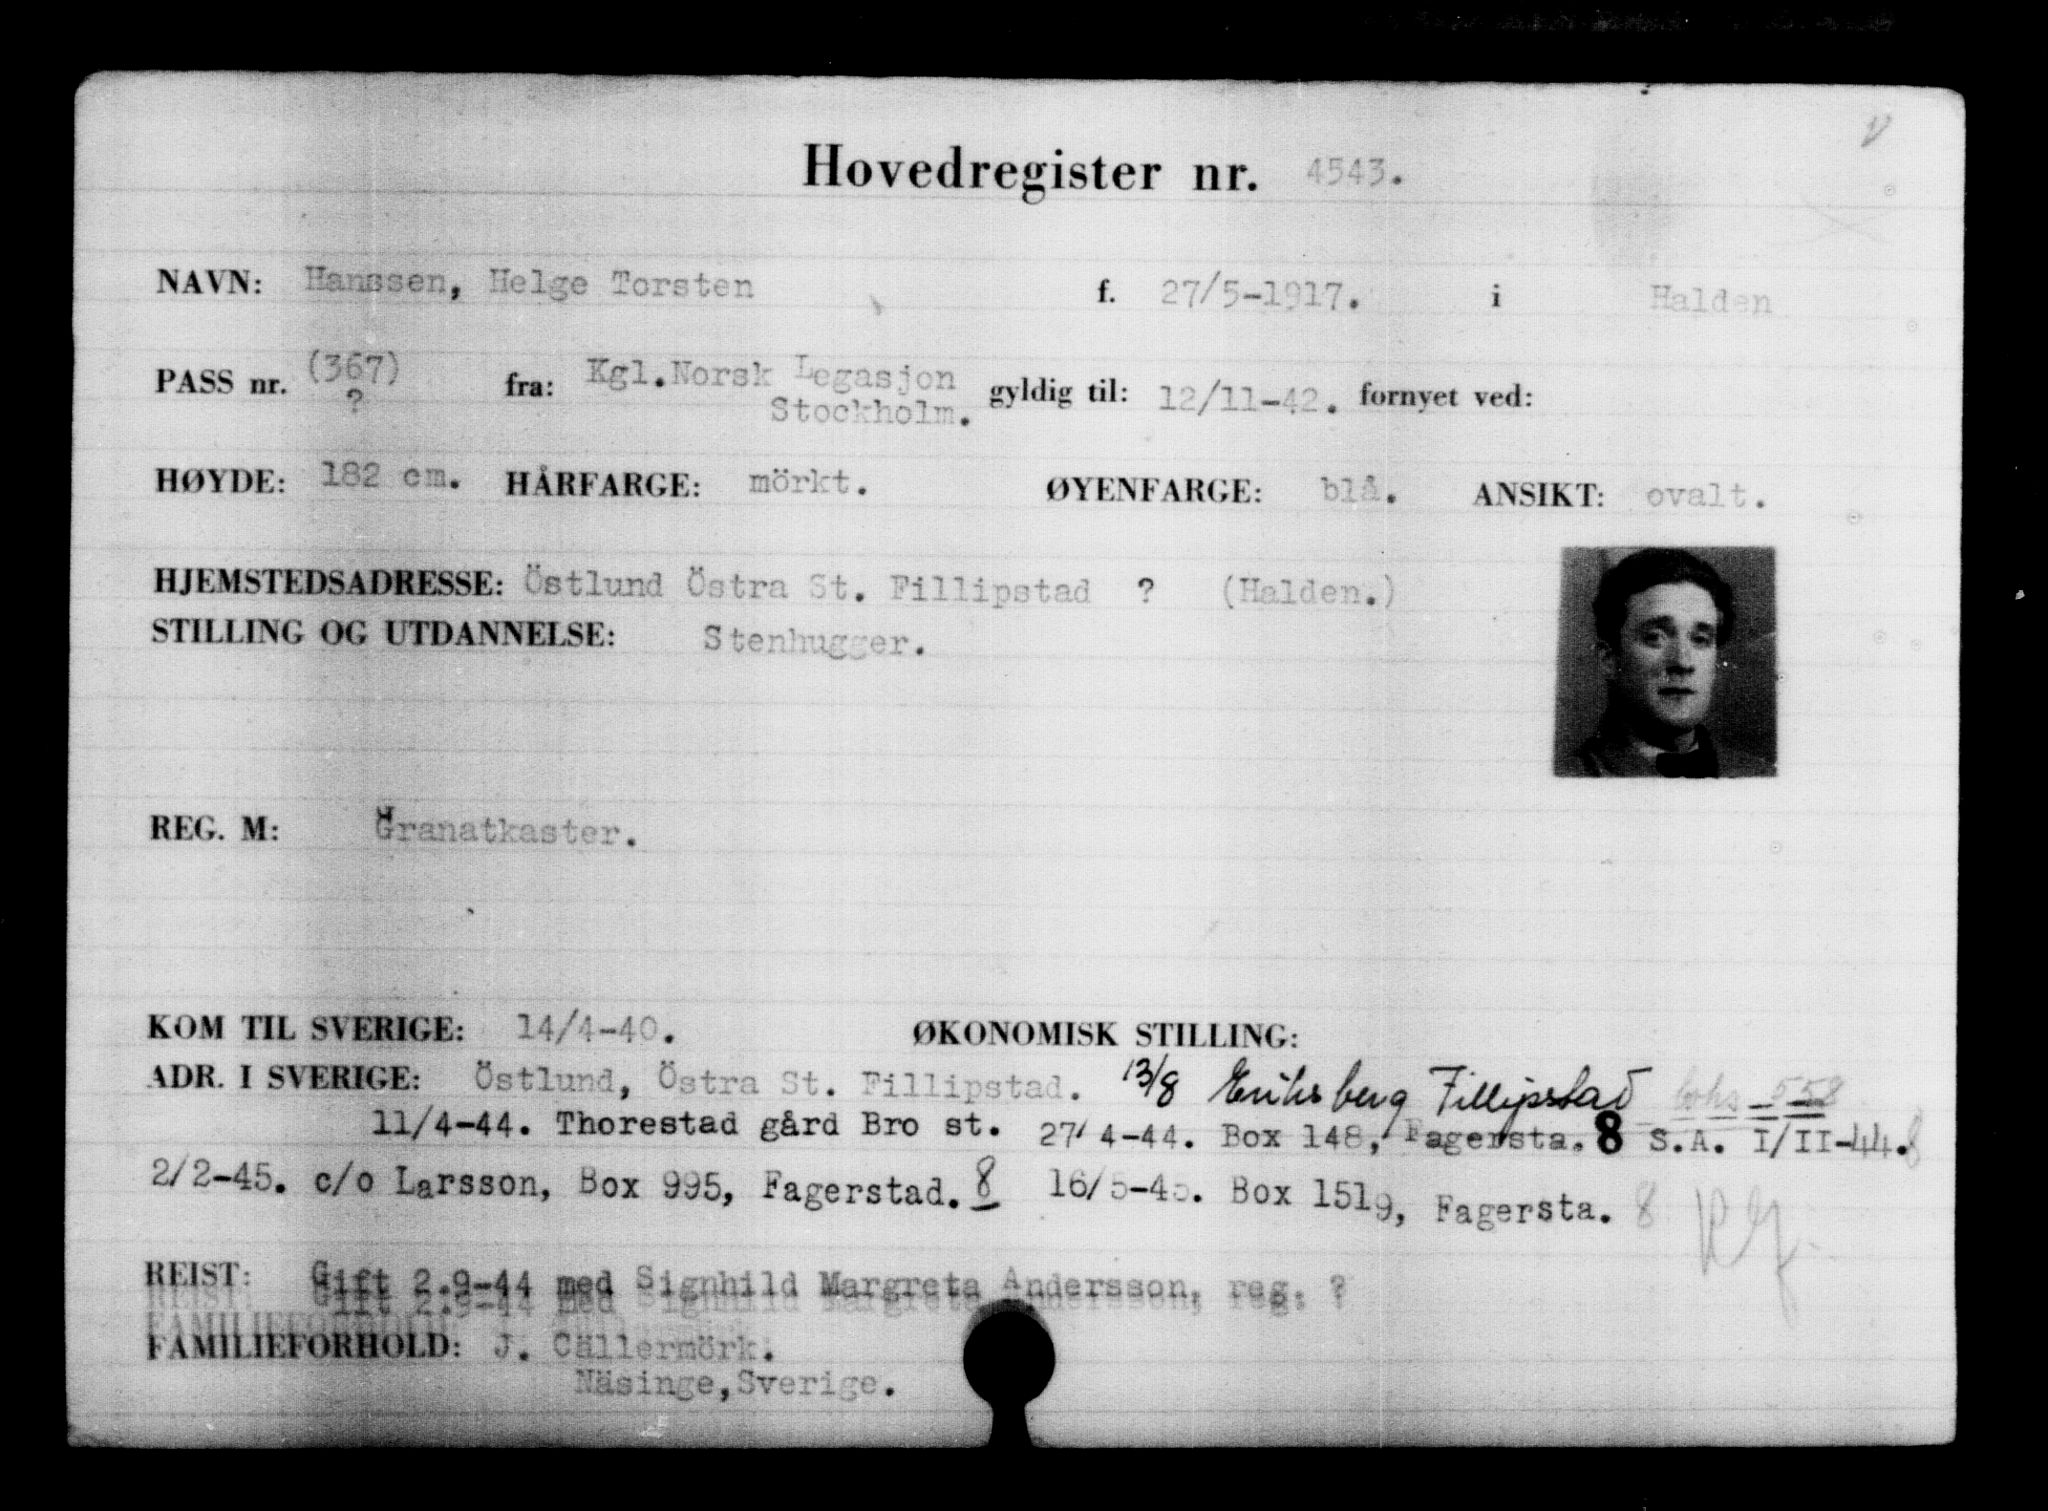 Hovedregister nr. 4543.
NAVN: Hanssen, Helge Torsten f. 27/5-1917. i Halden
PASS nr. (367) ? fra: Kgl.Norsk Legasjon Stockholm. gyldig til: 12/11-42. fornyet ved:
HØYDE: 182 cm. HÅRFARGE: mörkt. ØYENFARGE: blå. ANSIKT: ovalt.
HJEMSTEDSADRESSE: Östlund Östra St. Fillipstad ? (Halden.)
STILLING OG UTDANNELSE: Stenhugger.
REG. M: Granatkaster.
KOM TIL SVERIGE: 14/4-40. ØKONOMISK STILLING:
ADR. I SVERIGE: Östlund, Östra St. Fillipstad. 13/8 Eriksberg Fillipstad 558
11/4-44. Thorestad gård Bro st. 27/4-44. Box 148, Fagersta. 8 S.A. I/II-44. 8
2/2-45. c/o Larsson, Box 995, Fagerstad. 8 16/5-45. Box 1519, Fagersta. 8
REIST: Gift 2.9-44 med Signhild Margreta Andersson, reg. ?
FAMILIEFORHOLD: J. Cällermörk.
Näsinge,Sverige.